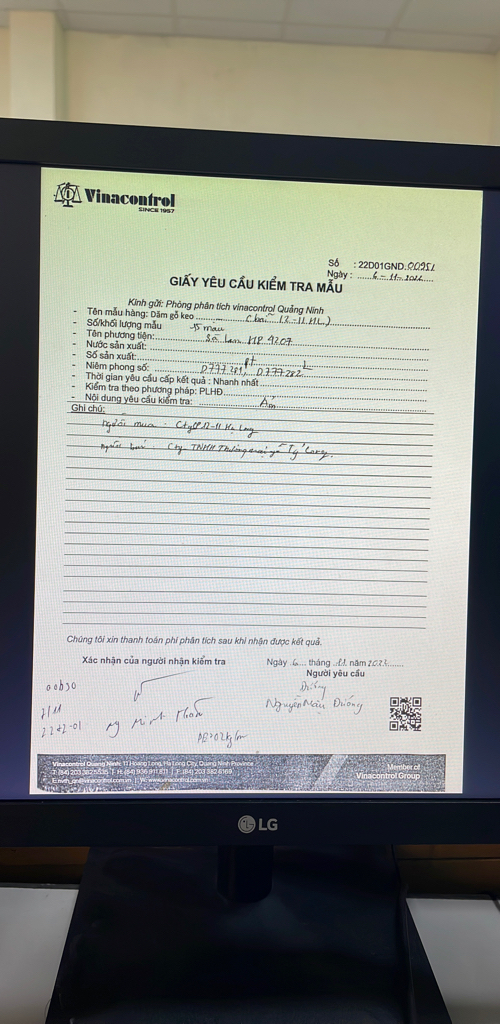 Vinacontrol
SINCE 1957
Số : 22D01GND.00951
Ngày : 6-11-
GIẤY YÊU CẦU KIỂM TRA MẪU
Kính gửi: Phòng phân tích vinacontrol Quảng Ninh
- Tên mẫu hàng: Dăm gỗ keo (12-11.HL)
- Số/khối lượng mẫu
- Tên phương tiện: Sà lan MP 4207
- Nước sản xuất:
- Số sản xuất:
- Niêm phong số: D777281, D777282
- Thời gian yêu cầu cấp kết quả : Nhanh nhất
- Kiểm tra theo phương pháp: PLHĐ
- Nội dung yêu cầu kiểm tra: Ẩm
Ghi chú:
Người mua - Cty CP 12-11 Hạ Long
Người bán - Cty TNHH Thương mại
Chúng tôi xin thanh toán phí phân tích sau khi nhận được kết quả.
Xác nhận của người nhận kiểm tra
Ngày 6 tháng 11 năm
Người yêu cầu
Dương
Nguyễn Dương
00630
2242-01
Minh
Vinacontrol Quang Ninh: 11 Hoang Long, Ha Long City, Quang Ninh Province
T: (84) 203 382 5535 | H: (84) 936 911 811 | F: (84) 203 382 6169
Member of
Vinacontrol Group
LG